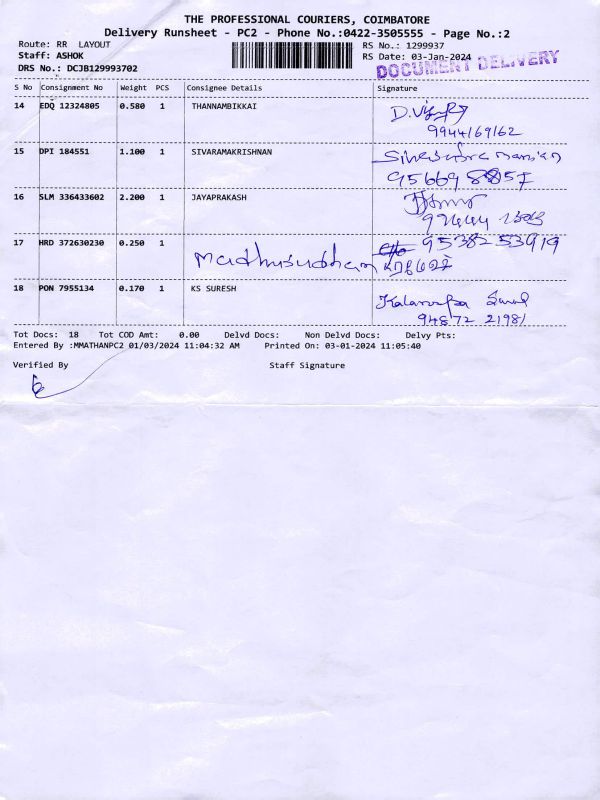 THE PROFESSIONAL COURIERS, COIMBATORE
Delivery Runsheet - PC2 - Phone No.:0422-3505555 - Page No.:2
Route: RR LAYOUT
RS No.: 1299937
Staff: ASHOK
RS Date: 03-Jan-2024
DRS No.: DCJB129993702
DOCUMENT DELIVERY
S No Consignment No Weight PCS Consignee Details Signature
14 EDQ 12324805 0.580 1 THANNAMBIKKAI
9944169162
15 DPI 184551 1.100 1 SIVARAMAKRISHNAN
16 SLM 336433602 2.200 1 JAYAPRAKASH
17 HRD 372630230 0.250 1 9538253919
Madhusudhan
18 PON 7955134 0.170 1 KS SURESH
94872 21981
Tot Docs: 18 Tot COD Amt: 0.00 Delvd Docs: Non Delvd Docs: Delvy Pts:
Entered By :MMATHANPC2 01/03/2024 11:04:32 AM Printed On: 03-01-2024 11:05:40
Verified By Staff Signature